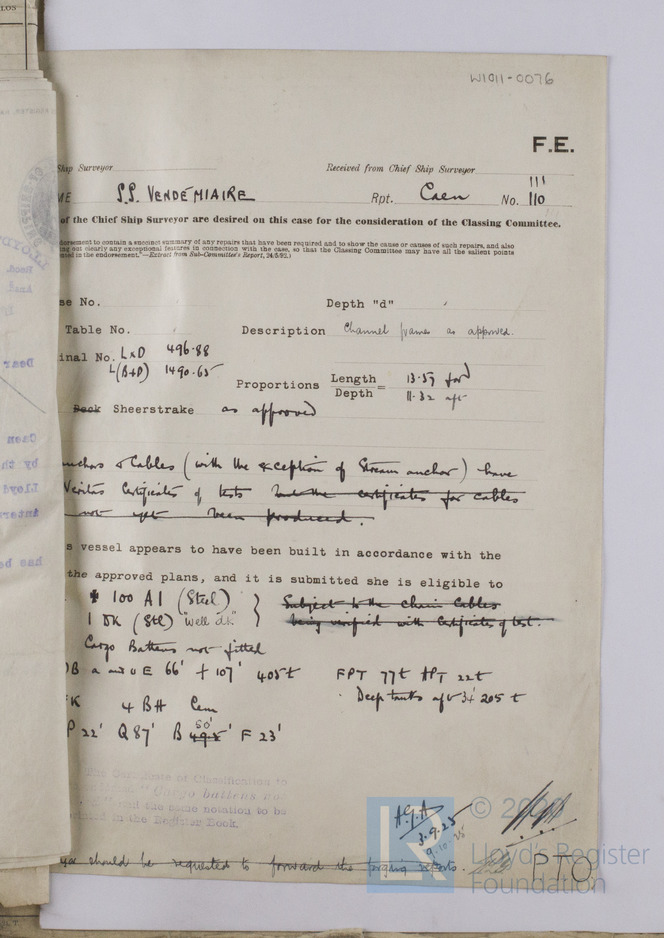 W1011-0076
F.E.
Ship Surveyor Received from Chief Ship Surveyor
111
ME S.S. VENDÉMIAIRE Rpt. Caen No. 110
of the Chief Ship Surveyor are desired on this case for the consideration of the Classing Committee.
dorsement to contain a succinct summary of any repairs that have been required and to show the cause or causes of such repairs, and also
ing out clearly any exceptional features in connection with the case, so that the Classing Committee may have all the salient points
ted in the endorsement."—Extract from Sub-Committee's Report, 24/5/92.)
se No. Depth "d"
Table No. Description Channel frames as approved.
inal No. L×D 496.88
L(B+D) 1490.65
Proportions Length/Depth = 13.59 ford
11.82 aft
Deck Sheerstrake as approved
nchors & Cables (with the exception of Stream anchor) have
Veritas Certificates of tests and the certificates for cables
not yet been produced.
s vessel appears to have been built in accordance with the
the approved plans, and it is submitted she is eligible to
100 A1 (Steel) } Subject to the chain cables
1 DK (Stl) "Well dk." being verified with Certificates of test.
Cargo Battens not fitted
DB a and u E 66' f 107' 405t FPT 77t APT 22t
Deep tanks aft 34' 205 t
FK 4 BH Cem
50'
P 22' Q 87' B 49.2' F 23'
The Certificate of Classification to
"Cargo battens not
and the same notation to be
in the Register Book.
A.J.A
3.9.25
9.10.25
should be requested to forward the forging reports.
PTO
LR
© 20
Lloyd's Register
Foundation
Dear
Caen
by th
Lloyd
inter
has be